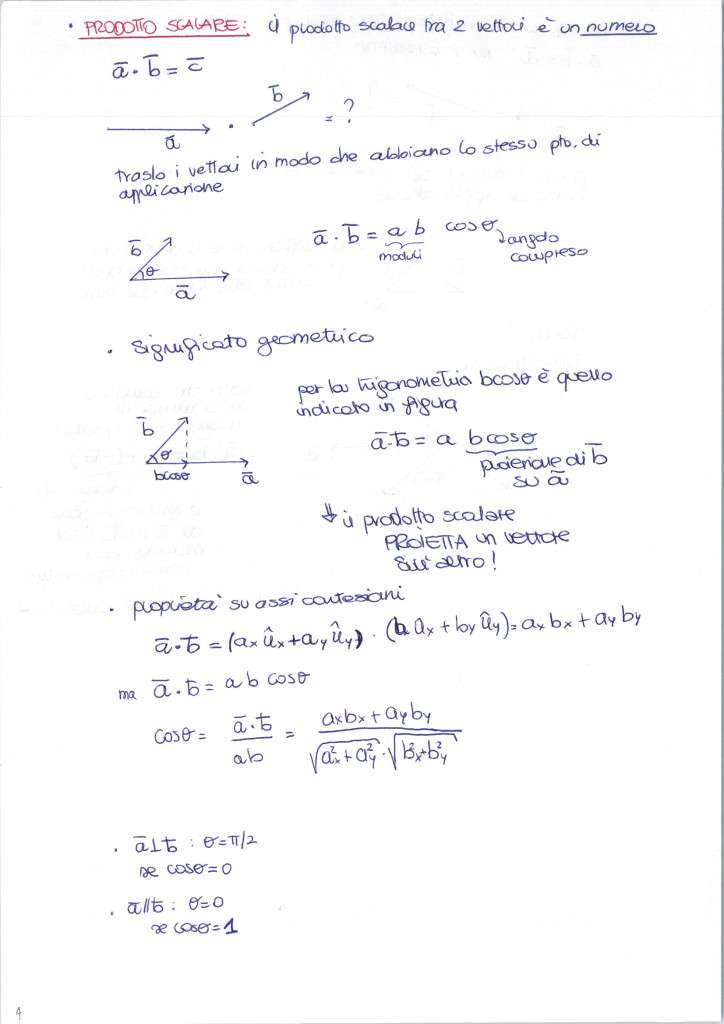 • PRODOTTO SCALARE: il prodotto scalare tra 2 vettori è un numero
a̅ · b̅ = c̅
a̅ · b̅ = ?
traslo i vettori in modo che abbiano lo stesso pto. di
applicazione
b̅ θ a̅
a̅ · b̅ = a b cosθ
moduli
angolo
compreso
• significato geometrico
per la trigonometria bcosθ è quello
indicato in figura
b̅ θ bcosθ a̅
a̅·b̅ = a bcosθ
proiezione di b̅
su a̅
⇓ il prodotto scalare
PROIETTA un vettore
sull'altro!
• proprietà su assi cartesiani
a̅·b̅ = (aₓûₓ+a_yû_y) · (b ûₓ + b_y û_y) = aₓbₓ + a_y b_y
ma a̅ · b̅ = a b cosθ
cosθ = a̅·b̅ / ab = aₓbₓ + a_yb_y / √(a²ₓ+a²_y) · √(b²ₓ+b²_y)
• a̅⊥b̅ : θ=π/2
se cosθ=0
• a̅//b̅ : θ=0
se cosθ=1
4